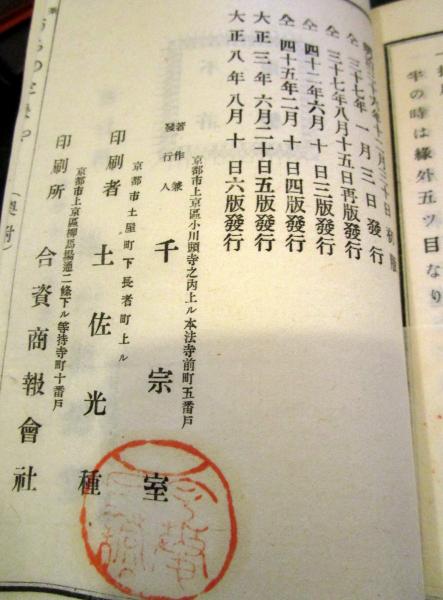 年の時は緣外五ツ目なり
明治三十六年十二月三十日初版
仝 三十七年一月三日發行
仝 三十七年八月十五日再版發行
仝 四十二年六月十日三版發行
仝 四十五年二月十日四版發行
大正三年六月二十日五版發行
大正八年八月十日六版發行
京都市上京區小川頭寺之内上ル本法寺前町五番戶
著作兼發行人 千宗室
京都市土屋町下長者町上ル
印刷者 土佐光種
京都市上京區柳馬場通二條下ル等持寺町十番戶
印刷所 合資商報會社
(奧附)